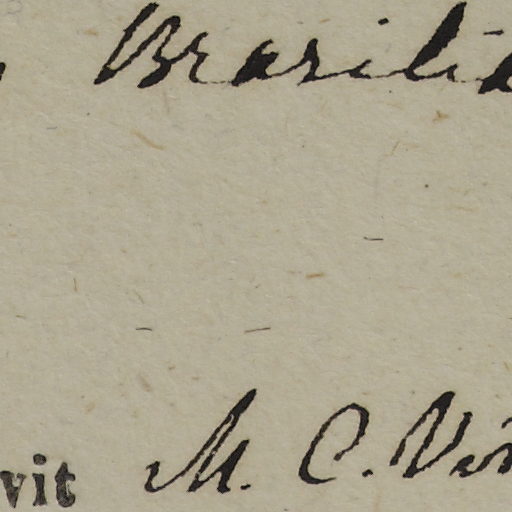 Brasilia
vit M. C. Vin